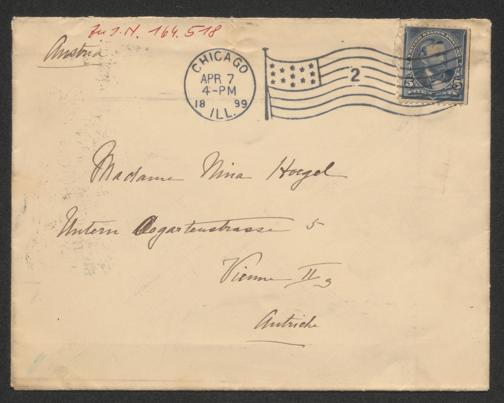 Zu I.N. 164.518
Austria
CHICAGO
APR 7
4-PM
18 99
ILL.
2
5 5
Madame Nina Hoegel
Untere Augartenstrasse 5
Vienne II/3
Autriche